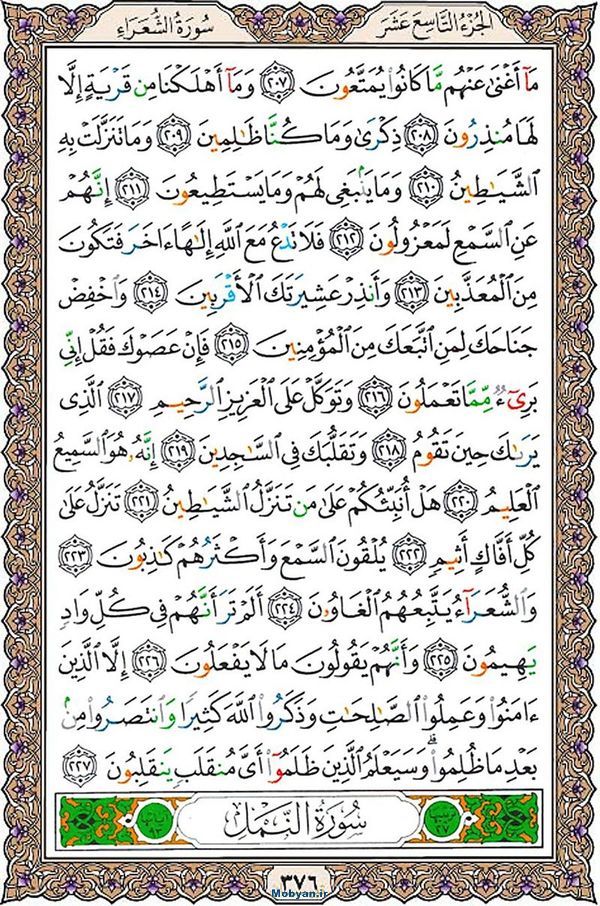 الجزء التاسع عشر
سورة الشعراء
مَآ أَغْنَىٰ عَنْهُم مَّا كَانُوا۟ يُمَتَّعُونَ ﴿٢٠٧﴾ وَمَآ أَهْلَكْنَا مِن قَرْيَةٍ إِلَّا
لَهَا مُنذِرُونَ ﴿٢٠٨﴾ ذِكْرَىٰ وَمَا كُنَّا ظَٰلِمِينَ ﴿٢٠٩﴾ وَمَا تَنَزَّلَتْ بِهِ
ٱلشَّيَٰطِينُ ﴿٢١٠﴾ وَمَا يَنۢبَغِى لَهُمْ وَمَا يَسْتَطِيعُونَ ﴿٢١١﴾ إِنَّهُمْ
عَنِ ٱلسَّمْعِ لَمَعْزُولُونَ ﴿٢١٢﴾ فَلَا تَدْعُ مَعَ ٱللَّهِ إِلَٰهًا ءَاخَرَ فَتَكُونَ
مِنَ ٱلْمُعَذَّبِينَ ﴿٢١٣﴾ وَأَنذِرْ عَشِيرَتَكَ ٱلْأَقْرَبِينَ ﴿٢١٤﴾ وَٱخْفِضْ
جَنَاحَكَ لِمَنِ ٱتَّبَعَكَ مِنَ ٱلْمُؤْمِنِينَ ﴿٢١٥﴾ فَإِنْ عَصَوْكَ فَقُلْ إِنِّى
بَرِىٓءٌ مِّمَّا تَعْمَلُونَ ﴿٢١٦﴾ وَتَوَكَّلْ عَلَى ٱلْعَزِيزِ ٱلرَّحِيمِ ﴿٢١٧﴾ ٱلَّذِى
يَرَىٰكَ حِينَ تَقُومُ ﴿٢١٨﴾ وَتَقَلُّبَكَ فِى ٱلسَّٰجِدِينَ ﴿٢١٩﴾ إِنَّهُۥ هُوَ ٱلسَّمِيعُ
ٱلْعَلِيمُ ﴿٢٢٠﴾ هَلْ أُنَبِّئُكُمْ عَلَىٰ مَن تَنَزَّلُ ٱلشَّيَٰطِينُ ﴿٢٢١﴾ تَنَزَّلُ عَلَىٰ
كُلِّ أَفَّاكٍ أَثِيمٍ ﴿٢٢٢﴾ يُلْقُونَ ٱلسَّمْعَ وَأَكْثَرُهُمْ كَٰذِبُونَ ﴿٢٢٣﴾
وَٱلشُّعَرَآءُ يَتَّبِعُهُمُ ٱلْغَاوُۥنَ ﴿٢٢٤﴾ أَلَمْ تَرَ أَنَّهُمْ فِى كُلِّ وَادٍ
يَهِيمُونَ ﴿٢٢٥﴾ وَأَنَّهُمْ يَقُولُونَ مَا لَا يَفْعَلُونَ ﴿٢٢٦﴾ إِلَّا ٱلَّذِينَ
ءَامَنُوا۟ وَعَمِلُوا۟ ٱلصَّٰلِحَٰتِ وَذَكَرُوا۟ ٱللَّهَ كَثِيرًا وَٱنتَصَرُوا۟ مِنۢ
بَعْدِ مَا ظُلِمُوا۟ ۗ وَسَيَعْلَمُ ٱلَّذِينَ ظَلَمُوٓا۟ أَىَّ مُنقَلَبٍ يَنقَلِبُونَ ﴿٢٢٧﴾
ترتيبها ٢٧
سورة النمل
آياتها ٩٣
٣٧٦
Mobyan.ir